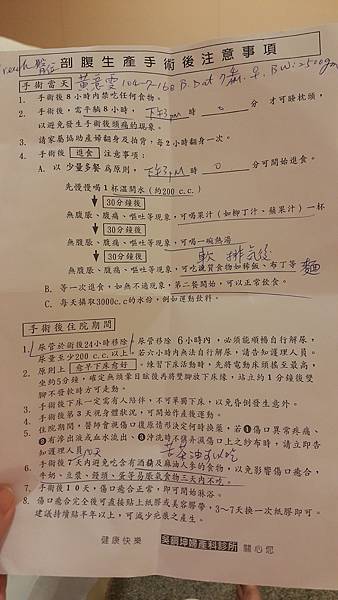 剖腹生產手術後注意事項
手術當天
1. 手術後8小時內禁吃任何食物。
2. 手術後,需平躺8小時, 下午3pm 時 0 分 才可睡枕頭,
以避免發生手術後頭痛的現象。
3. 請家屬協助產婦翻身及拍背,每2小時翻身一次。
4. 手術後 進食 注意事項:
A. 以少量多餐為原則, 下午3pm 時 0 分可開始進食。
先慢慢喝1杯溫開水(約200 c.c.)
30分鐘後
無腹脹、腹痛、嘔吐等現象,可喝果汁(如柳丁汁、蘋果汁)一杯
30分鐘後
無腹脹、腹痛、嘔吐等現象,可喝一碗熱湯
30分鐘後 軟 排氣後
無腹脹、腹痛、嘔吐等現象,可吃流質食物如稀飯、布丁等 麵
B. 等一次進食,如無不適現象,第二餐開始,可以正常飲食。
C. 每天攝取3000c.c的水份,例如運動飲料。
手術後住院期間
1. 尿管於術後24小時移除,尿管移除6小時內,必須能順暢自行解尿,
尿量至少200 c.c.以上。若六小時內無法自行解尿,請告知護理人員。
2. 原則上 愈早下床愈好 。練習下床活動時,先將電動床頭搖至最高,
坐約5分鐘,確定無頭暈目眩後再將雙腳放下床緣,站立約1分鐘後雙
腳不發軟時方可走動。
3. 手術後下床一定需有人陪伴,不可單獨下床,以免昏倒發生意外。
4. 手術後第3天視身體狀況,可開始作產後運動。
5. 住院期間,醫師會視傷口復原情布決定何時換藥,若❶傷口異常疼痛、
❷有滲出液或血水流出、❸沖洗時不慎弄濕傷口上之紗布時,請立即告
知護理人員
6. 手術後7天內避免吃含有酒類及麻油人參的食物,以免影響傷口癒合,
牛奶、豆漿、饅頭、蛋等易脹氣食物三天內不吃。
7. 手術後10天,傷口癒合正常,即可開始淋浴。
8. 傷口癒合完全後可直接貼上紙膠或美容膠帶,3~7天換一次紙膠即可。
建議持續貼半年以上,可減少疤痕之產生。
健康快樂 吳錫坤婦產科診所 關心您